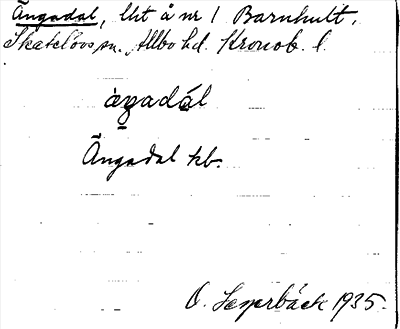 Ängadal, lht å nr 1 Barnhult,
Skatelövs sn. Allbo hd. Kronob. l.
Ängadal kb.
O. 1935.